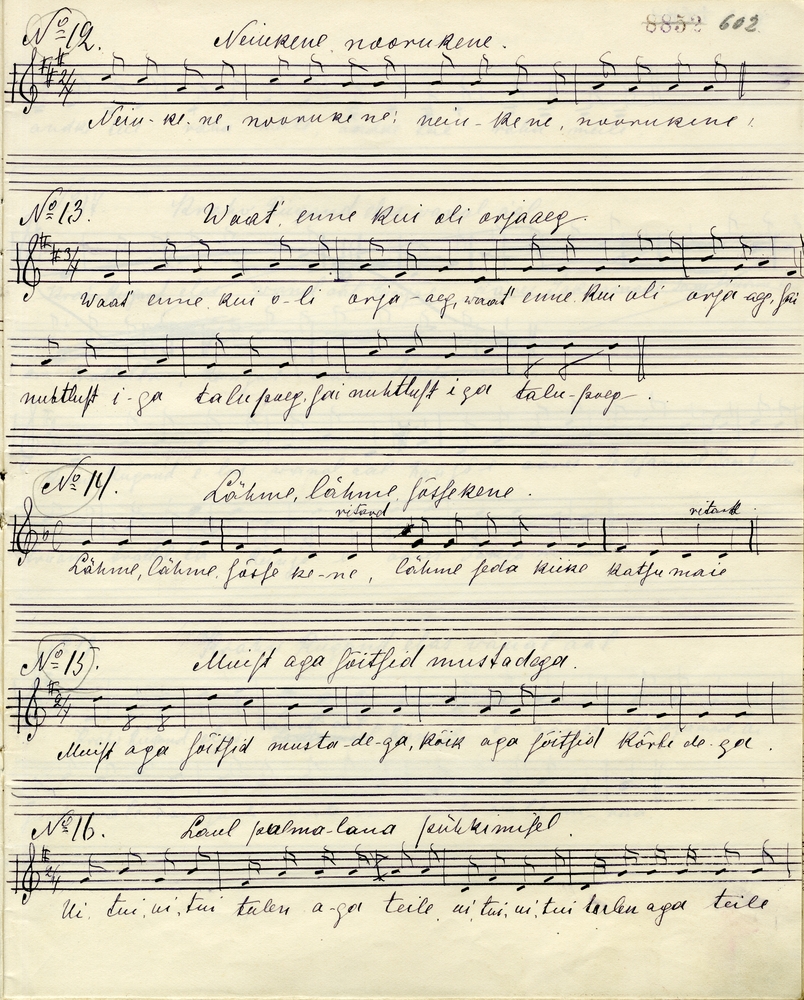 8852 602
№ 12. Neiukene, noorukene.
2/4
Neiu-ke-ne, noorukene; neiu-kene, noorukene;
№ 13. Waat' enne kui oli orjaaeg.
3/4
Waat' enne kui o-li orja-aeg, waat' enne kui oli orja aeg, sai
nuhtlust i-ga talupoeg, sai nuhtlust iga talu-poeg.
№ 14. Lähme, lähme, sõssekene.
ritard ritard
Lähme, lähme, sõsse ke-ne, lähme seda kiike katsumaie
№ 15. Muist aga sõitsid mustadega.
2/4
Muist aga sõitsid musta-de-ga, kõik aga sõitsid kõrbe de-ga.
№ 16. Laul pulma-laua pühkimisel.
2/4
Ui, tui, ui, tui tulen a-ga teile, ui, tui, ui, tui tulen aga teile